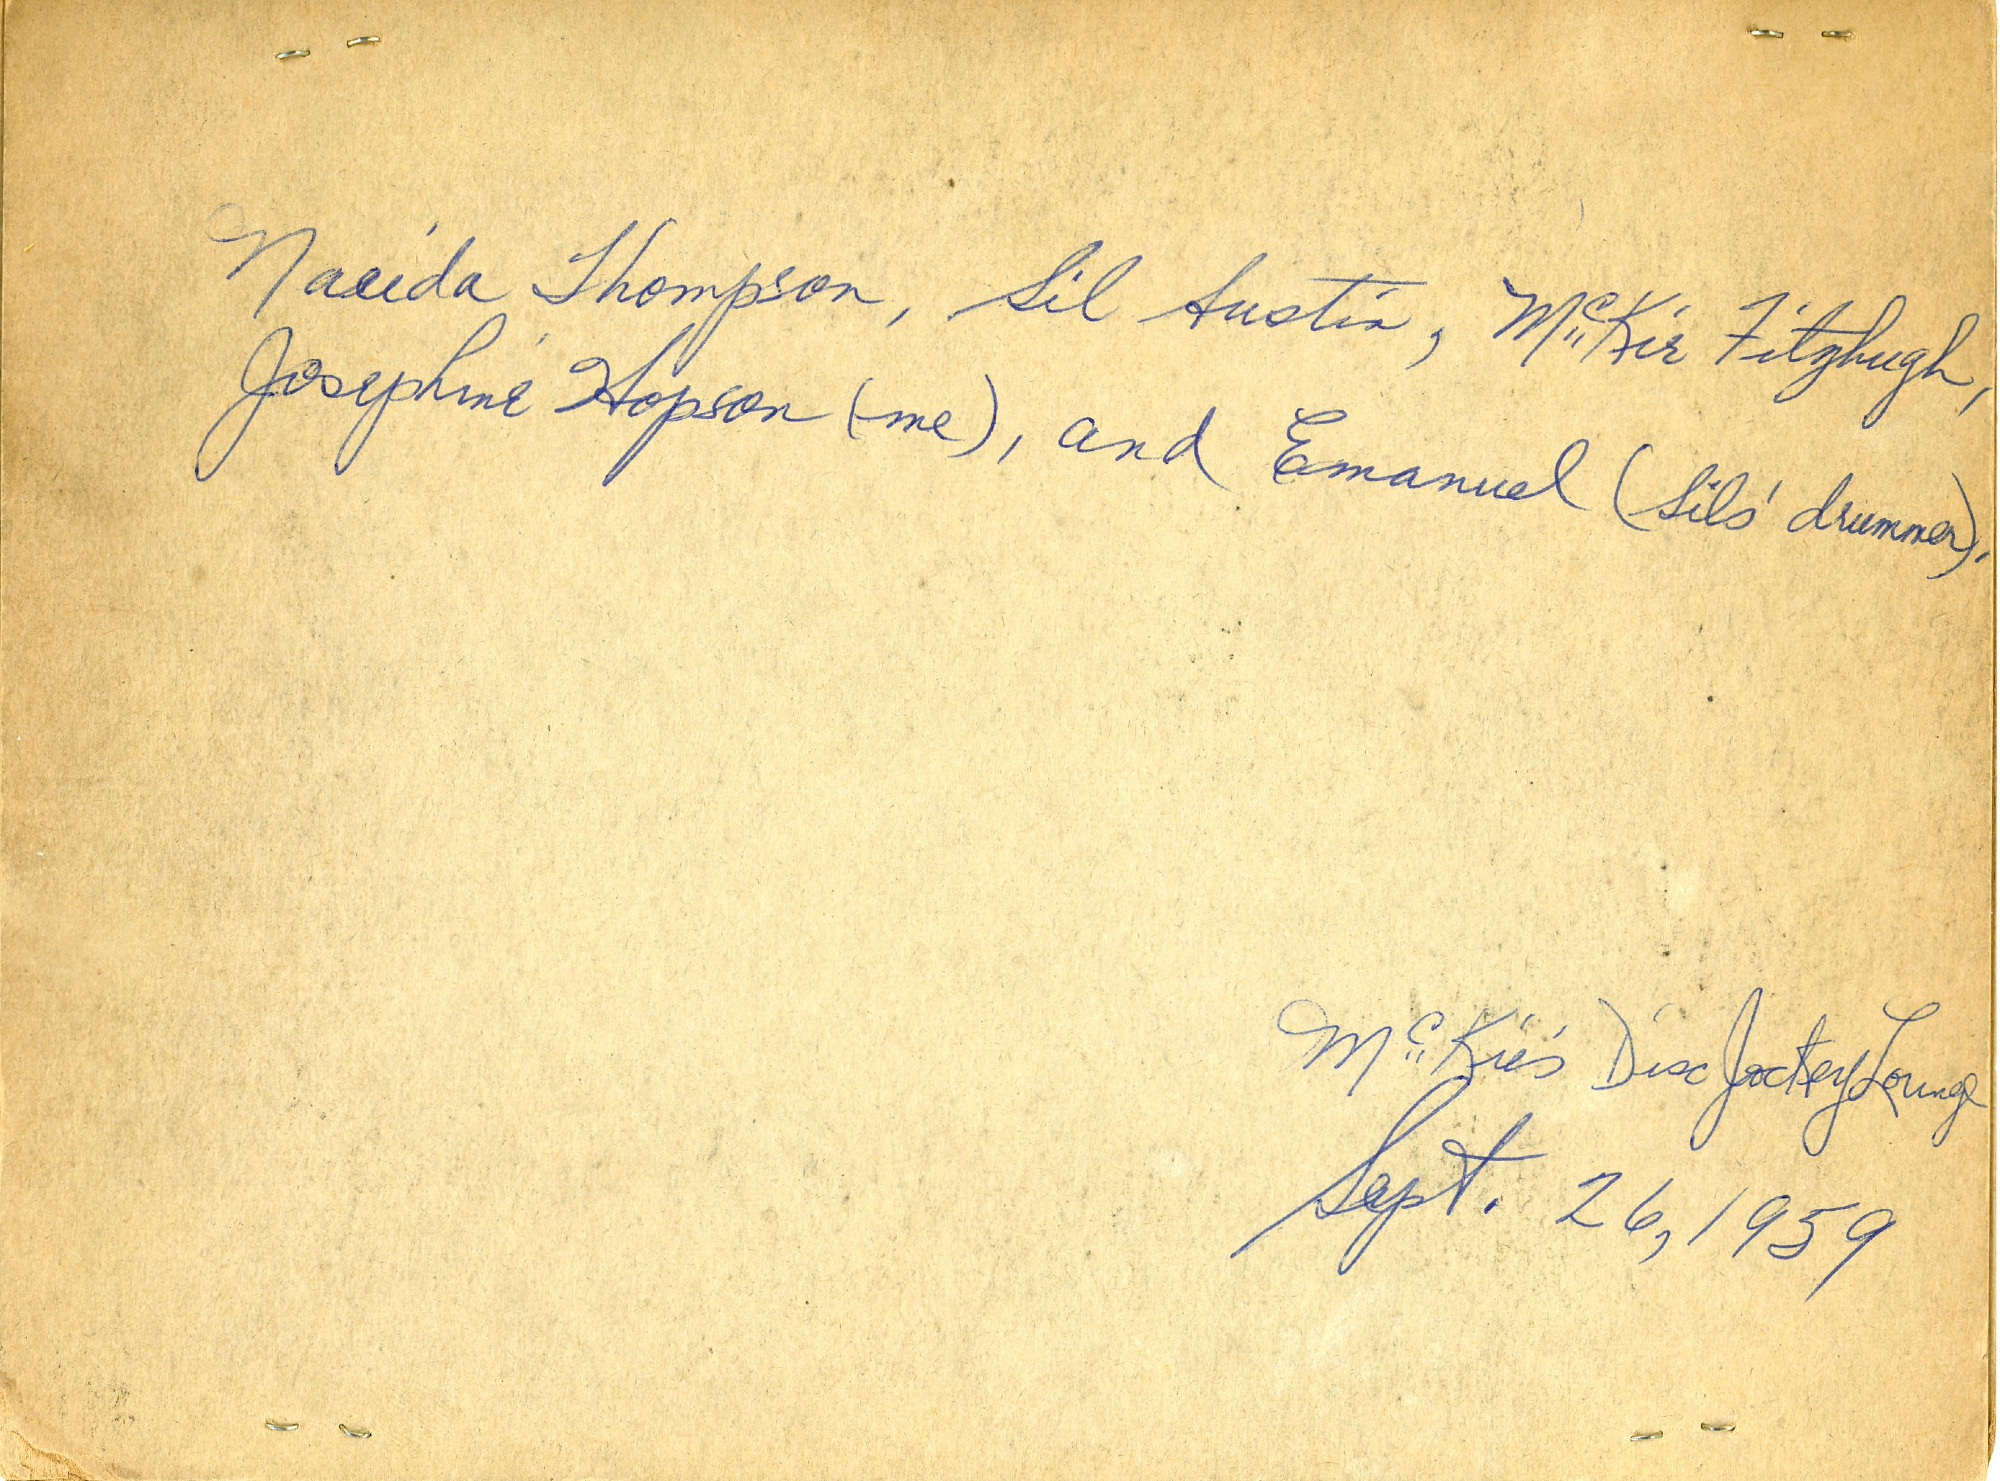 Naeida Thompson, Sil Austin, McKie Fitzhugh,
Josephine Hopson (me), and Emanuel (Sils' drummer).
McKie's Disc Jockey Lounge
Sept. 26, 1959